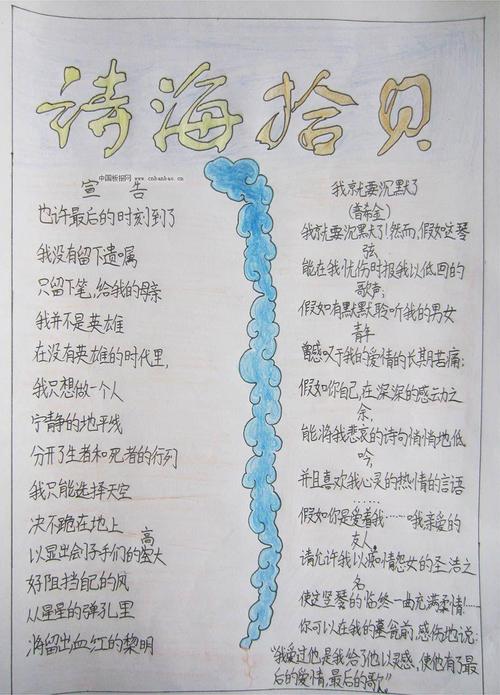 诗海拾贝
中国板报网 www.cnbanbao.cn
宣 告
也许最后的时刻到了
我没有留下遗嘱
只留下笔,给我的母亲
我并不是英雄
在没有英雄的时代里,
我只想做一个人
宁静的地平线
分开了生者和死者的行列
我只能选择天空
决不跪在地上
以显出刽子手们的高大
好阻挡自己的风
从星星的弹孔里
将留出血红的黎明
我就要沉默了
(普希金)
我就要沉默了!然而,假如这琴
弦,
能在我忧伤时报我以低回的
歌声;
假如有默默聆听我的男女
青年
曾感叹于我的爱情的长期苦痛;
假如你自己,在深深的感动之
余,
能将我悲哀的诗句悄悄地低
吟,
并且喜欢我心灵的热情的言语
……
假如你是爱着我……哦我亲爱的
友人,
请允许我以痴情怨女的圣洁之
名
使这竖琴的临终一曲充满柔情!…
你可以在我的墓瓮前,感伤地说:
“我爱过他是我给了他以灵感,使他有了最
后的爱情,最后的歌”